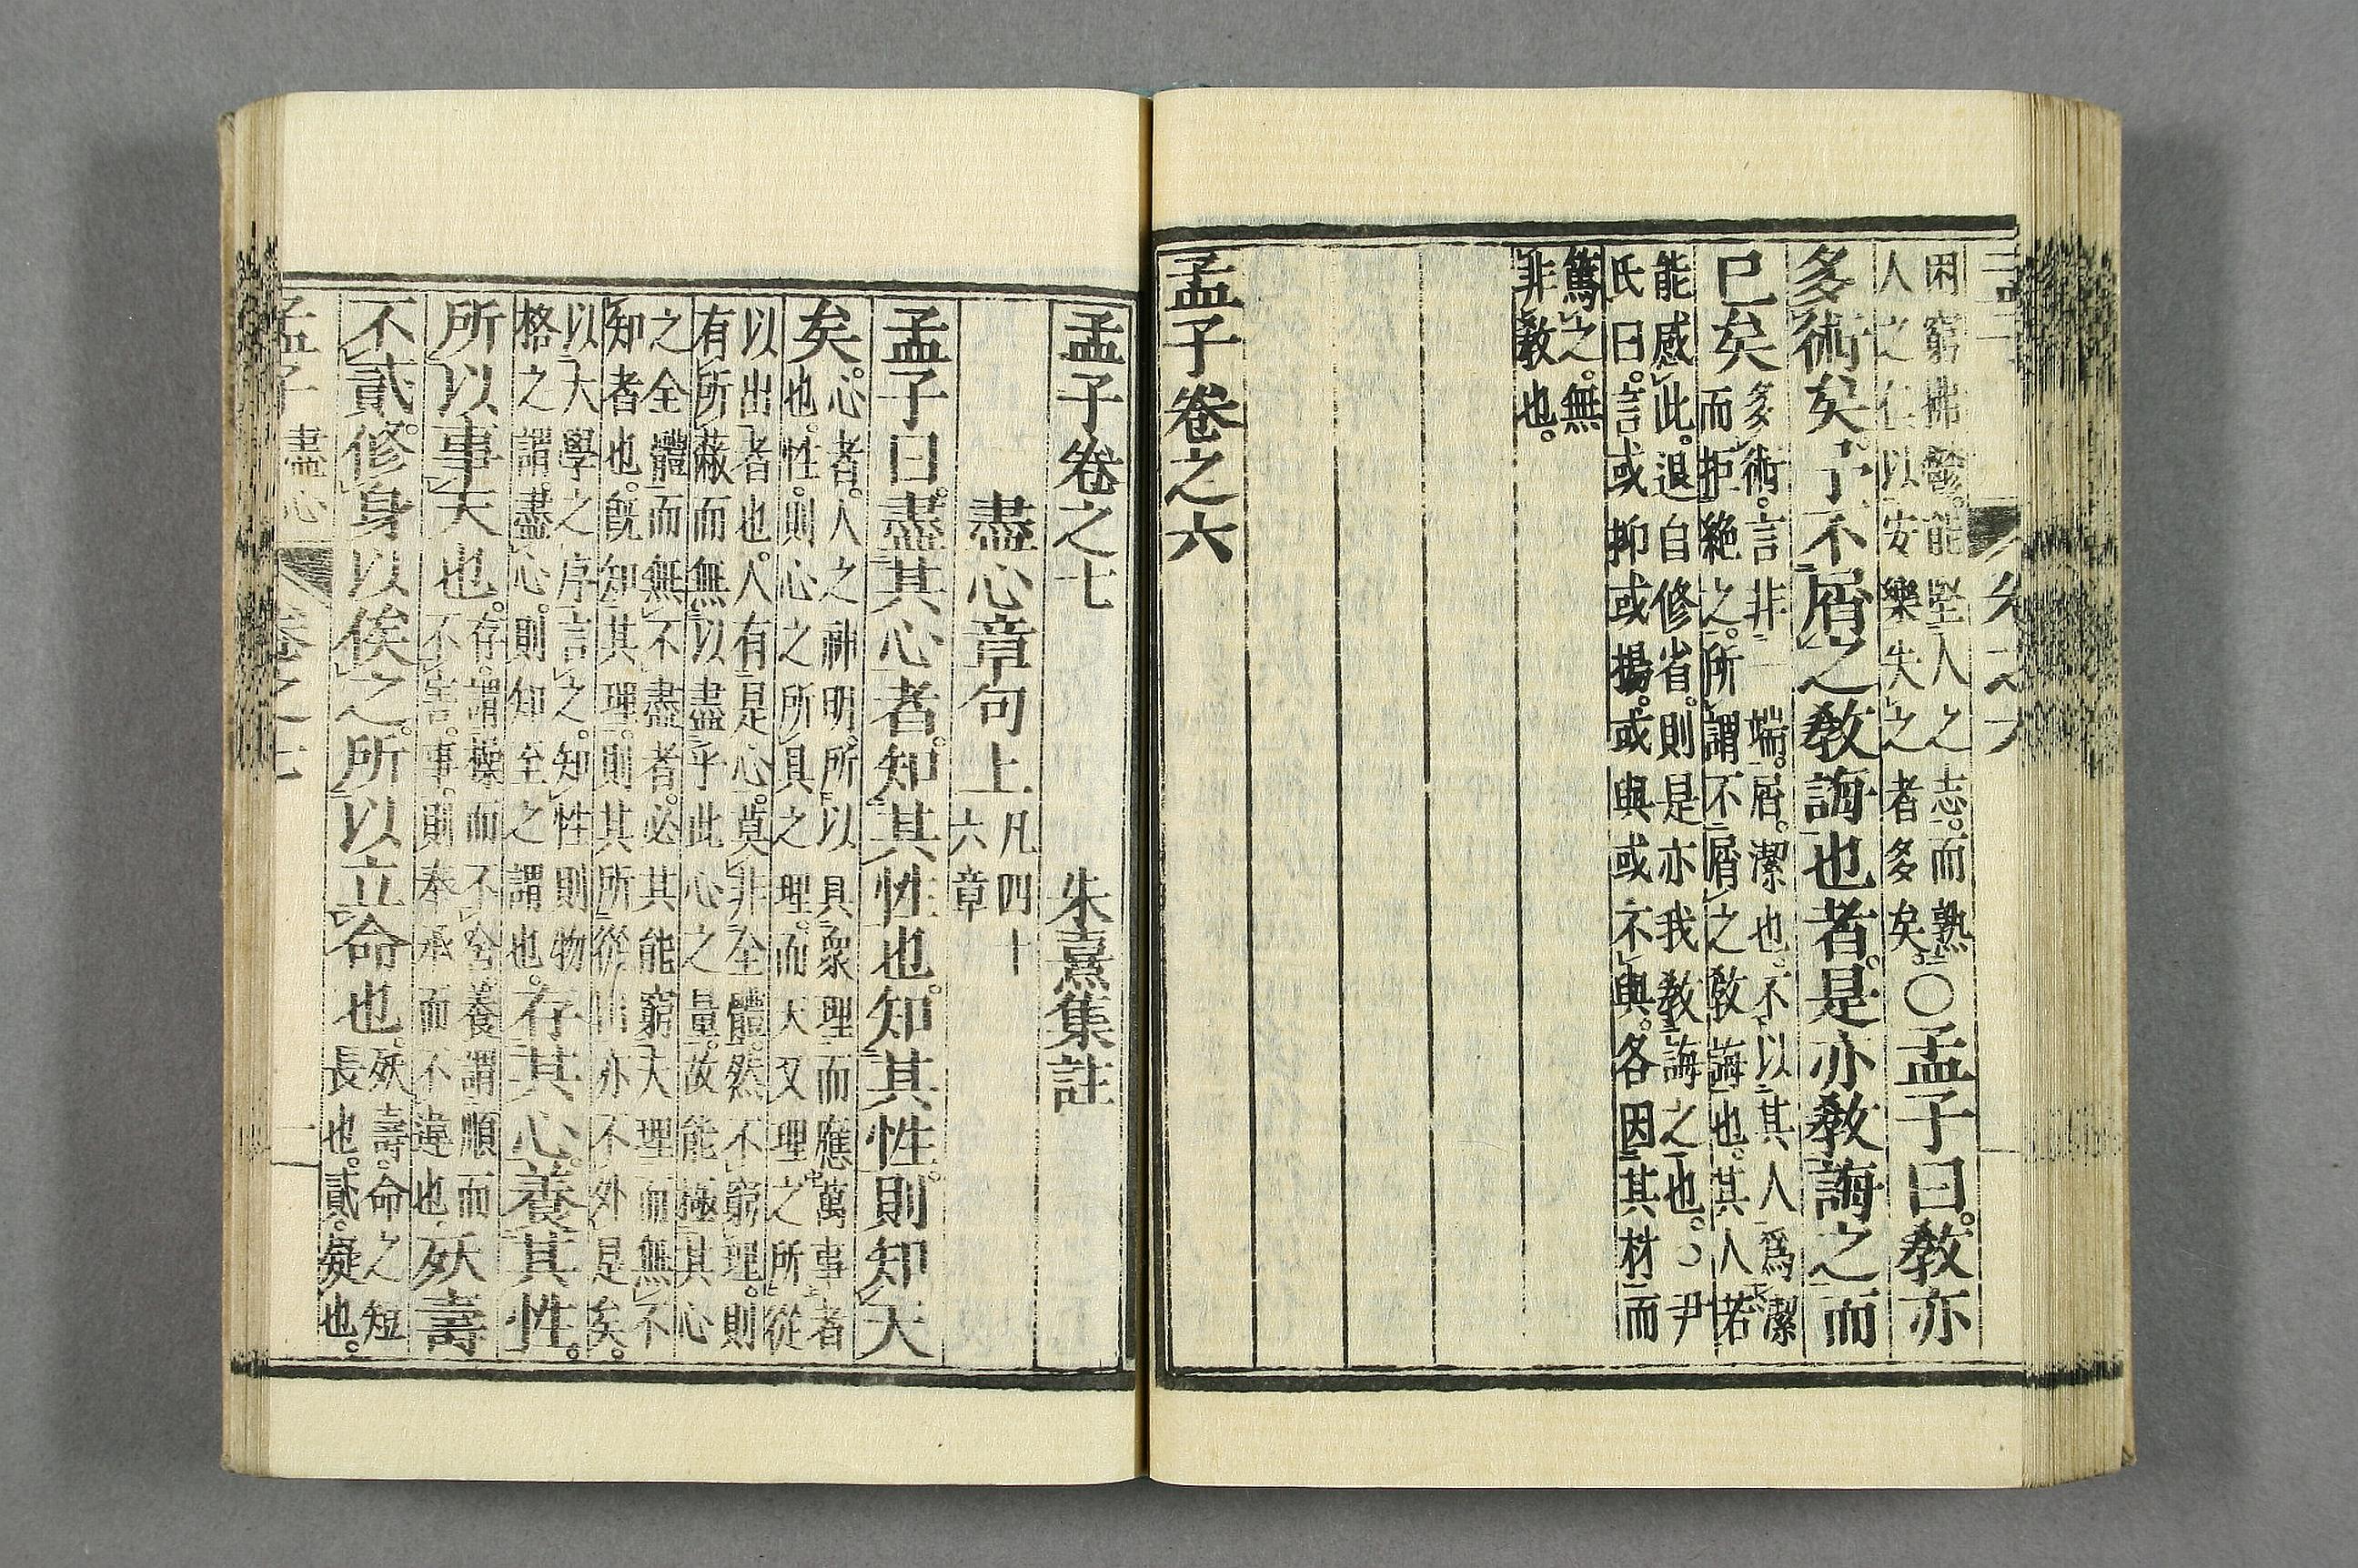 困窮拂鬱。能堅人之志。而熟
人之仁以安樂失之者多矣。
○孟子曰。教亦
多術矣。予不屑之教誨也者。是亦教誨之而
已矣
多術。言非一端。屑。潔也。不以其人爲潔
而拒絶之。所謂不屑之教誨也。其人若
能感此。退自修省。則是亦我教誨之也。○尹
氏曰。言或抑或揚。或與或不與。各因其材而
篤之。無
非教也。
孟子卷之六
孟子卷之七 朱熹集註
盡心章句上
凡四十
六章
孟子曰。盡其心者。知其性也。知其性。則知天
矣。
心者。人之神明。所以具衆理而應萬事者
也。性。則心之所具之理。而天又理之所從
以出者也。人有是心。莫非全體。然不窮理。則
有所蔽而無以盡乎此心之量。故能極其心
之全體而無不盡者。必其能窮夫理而無不
知者也。旣知其理。則其所從出亦不外是矣。
以大學之序言之。知性則物
格之謂。盡心。則知至之謂也。
存其心。養其性。
所以事天也。
存。謂操而不舍。養謂順而
不害。事。則奉承而不違也。
殀壽
不貳。修身以俟之。所以立命也。
殀壽。命之短
長也。貳。疑也。
孟子 盡心 卷之七 一